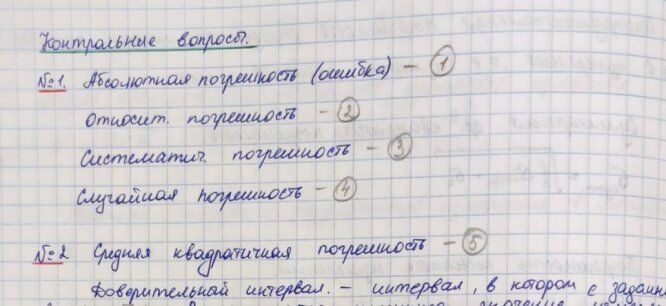 Контрольные вопросы.
№1. Абсолютная погрешность (ошибка) – 1
Относит. погрешность – 2
Систематич. погрешность – 3
Случайная погрешность – 4
№2 Средняя квадратичная погрешность – 5
Доверительный интервал. – интервал, в котором с заданн
значение